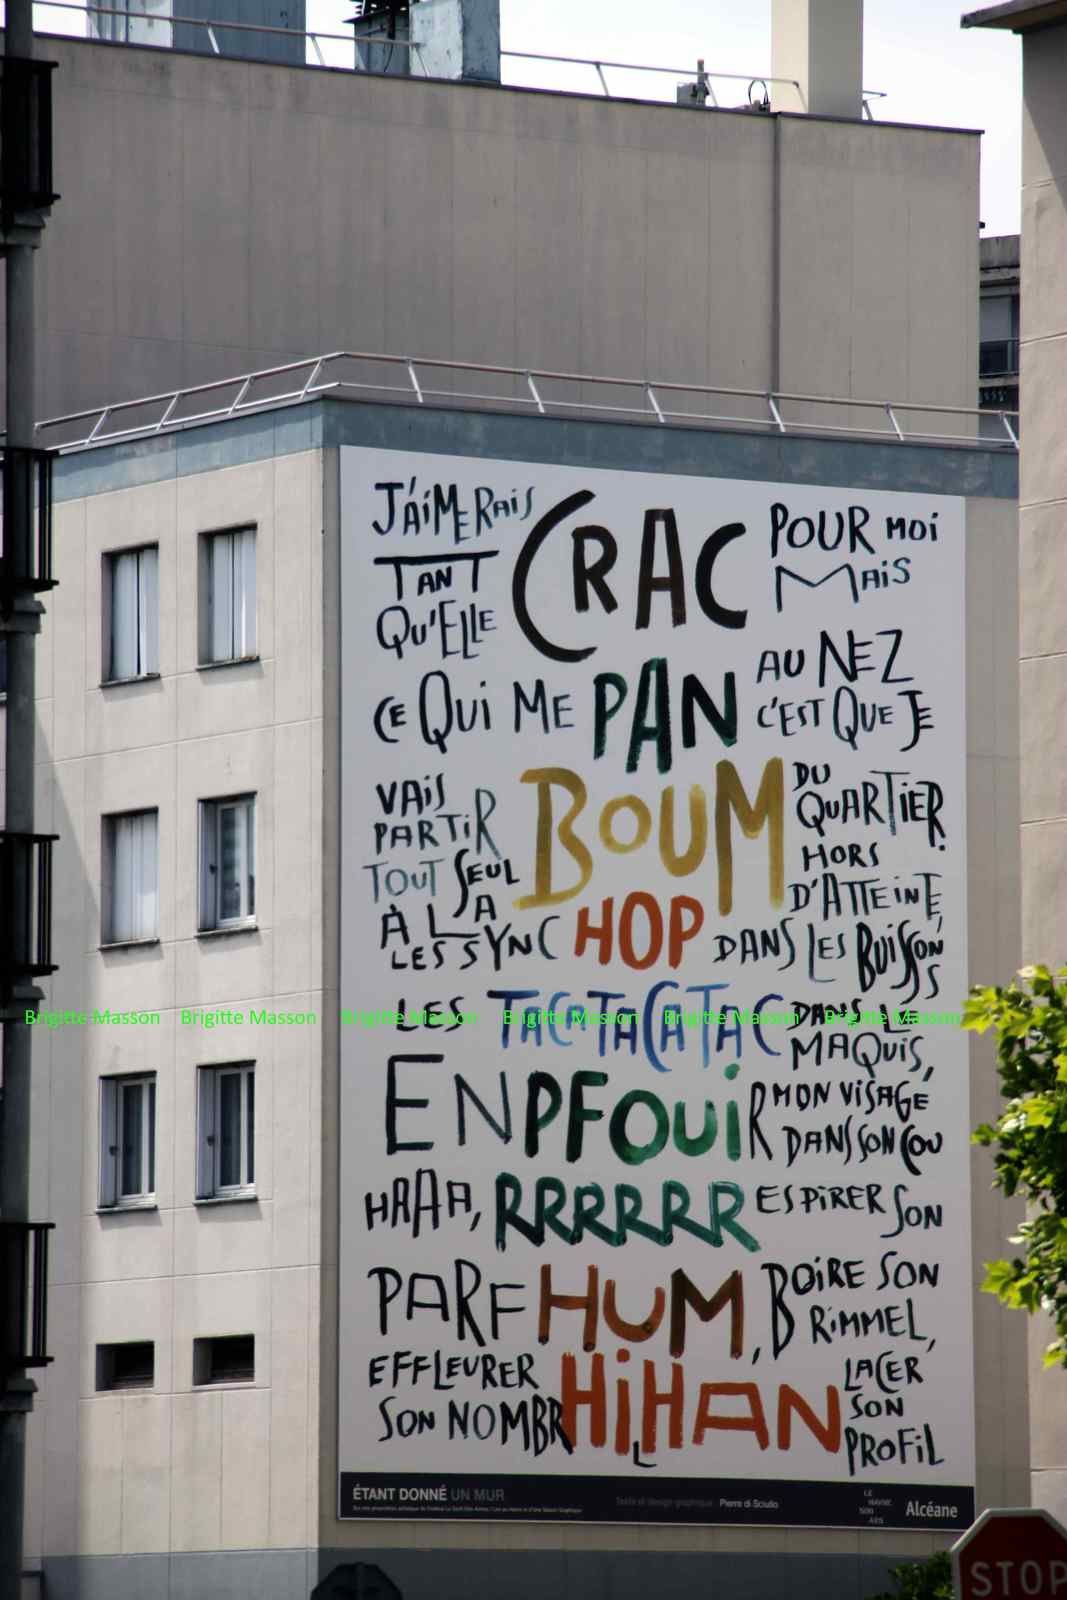 J'AiMERAiS
TANT CRAC POUR MOi
QU'ELLE MAiS
CE QUi ME PAN AU NEZ
C'EST QUE JE
VAiS BOUM DU
PARTiR QUARTiER.
TOUT SEUL HORS
À LA D'ATTEiNTE,
LES SYNC HOP DANS LES BUiSSONS
LES TACATACATAC DANS L
MAQUiS,
ENPFOUiR MON ViSAGE
DANS SON COU
HAAA, RRRRRR ESPiRER SON
PARFHUM, BOiRE SON
RiMMEL,
EFFLEURER HiHAN LACER
SON NOMBRiL SON
PROFiL
ÉTANT DONNÉ UN MUR
Texte et design graphique : Pierre di Sciullo
LE
HAVRE
500
ANS
Alcéane
STOP
Brigitte Masson Brigitte Masson Brigitte Masson Brigitte Masson Brigitte Masson Brigitte Masson